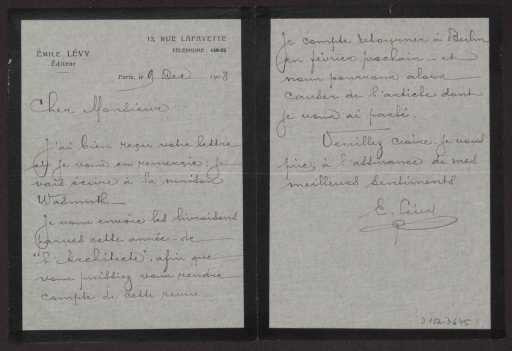 ÉMILE LÉVY
Éditeur
13, RUE LAFAYETTE
TÉLÉPHONE
Paris, le 9 Dec 1908
Cher Monsieur
J'ai bien reçu votre lettre
et je vous en remercie; je
vais écrire à la maison
Wasmuth.
Je vous envoie les livraisons
parues cette année de
"L'Architecte", afin que
vous puissiez vous rendre
compte de cette revue.
Je compte retourner à Berlin
en février prochain et
nous pourrons alors
causer de l'article dont
je vous ai parlé.
Veuillez croire, je vous
prie, à l'assurance de mes
meilleurs sentiments
E. Lévy